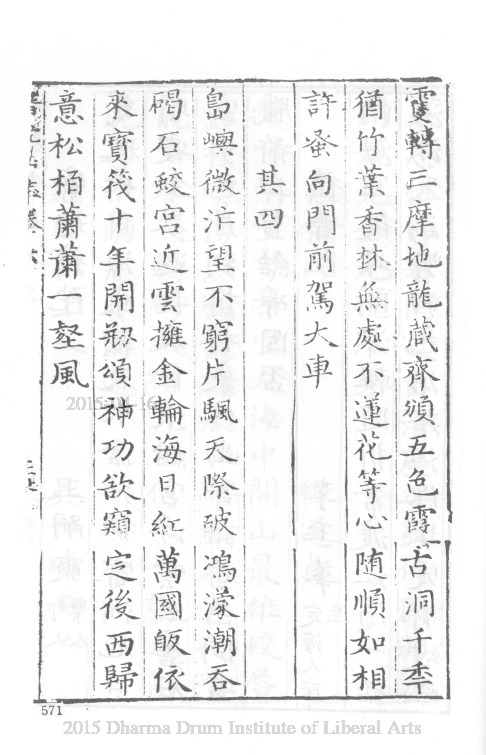 䨇轉三摩地龍藏齊頒五色霞古洞千秊
猶竹葉香林無處不蓮花等心随順如相
許蚤向門前駕大車
其四
島嶼微茫望不窮片颿天際破鴻濛潮吞
碣石蛟宮近雲擁金輪海日紅萬國皈依
來寶筏十年開剏頌神功欲窺定後西歸
意松栢蕭蕭一壑風
571
2015 Dharma Drum Institute of Liberal Arts